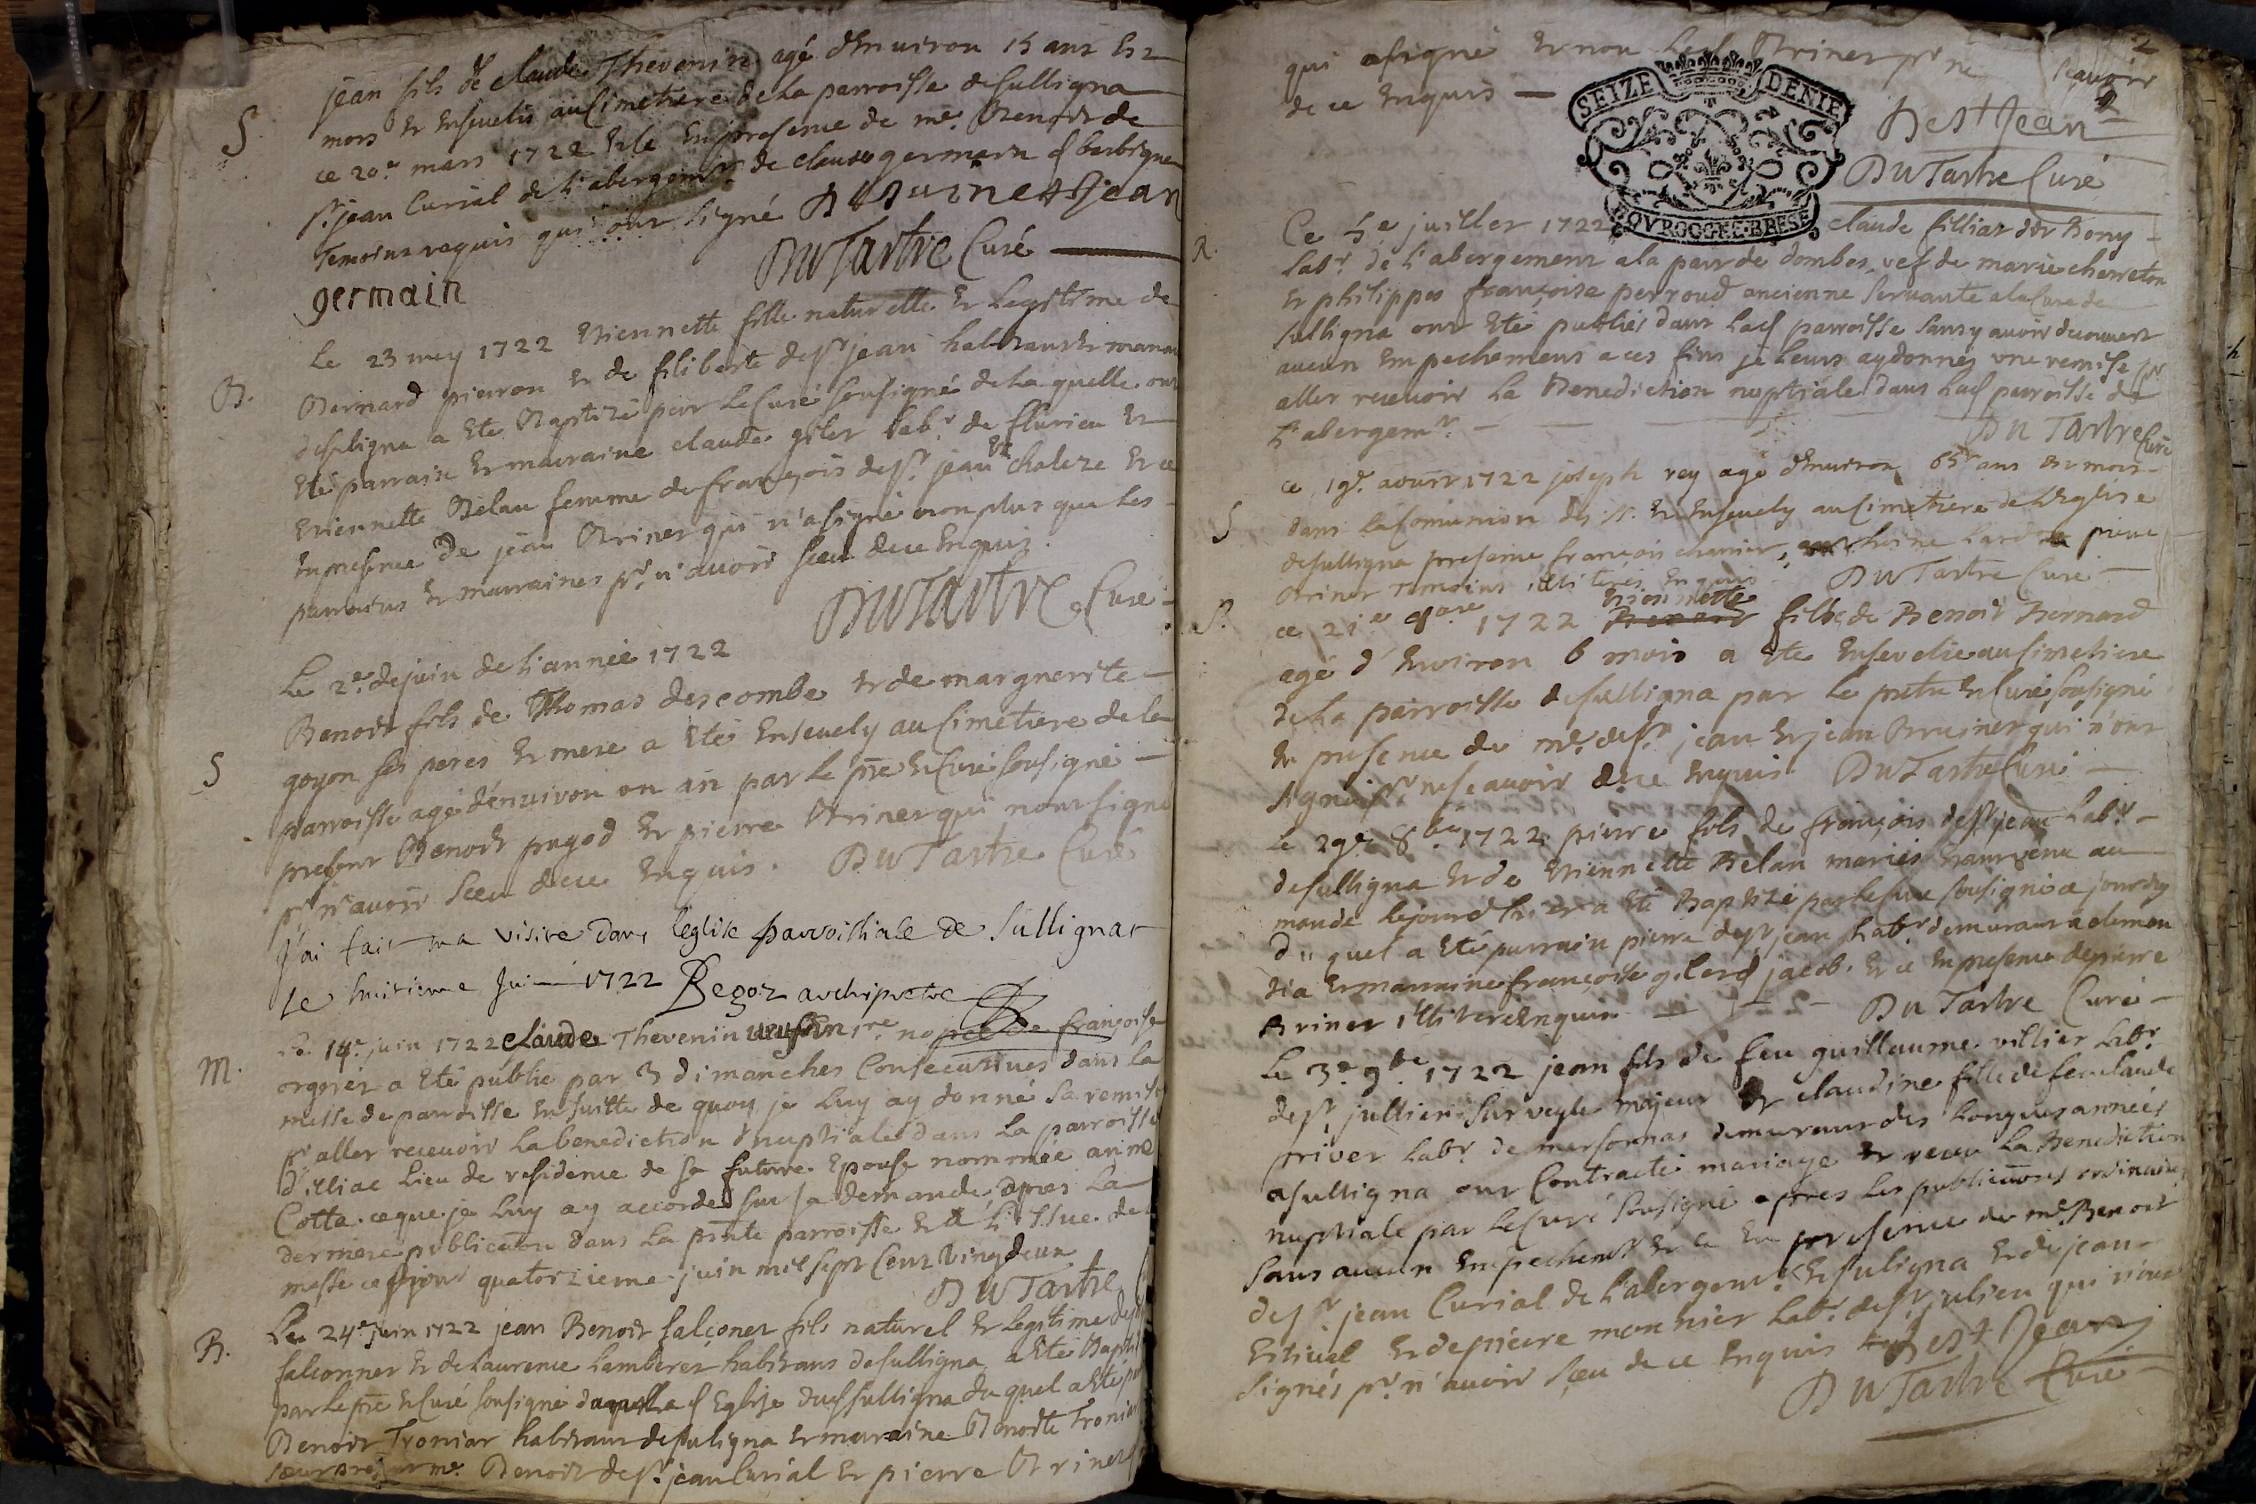 jean fils de claude Thevenin agé d'Environ 15 ans Est
S
mors Et Ensevelis au Cimetiere de la parroisse de sulligna
ce 20e mars 1722 Et ce En presence de me. Benoit de
st. jean Curial de l'abergemt. de claude germain
Temoins requis qui ont signé
Du Tartre Curé
germain
B.
Le 23 mey 1722 Etiennette fille naturelle Et Legitime de
Bernard pieron Et de filiberte de st jean habitants Et manan
de suligna a Ete Baptizé par Le Curé sousigné de La quelle ont
Eté parrain Et marraine claude giler Labr. de flurieu Et
Etiennette Belau femme de françois de st. jean Et ce
En presence de jean Briner qui n'a signé non plus que Les
parreins Et marraines pr. n'avoir sceu de ce Enquis.
Du Tartre Curé
Le 2e. de juin de l'année 1722
S
Benoit fils de Thomas descombe Et de marguerite
goyon ses peres Et mere a Eté Ensevely au Cimetiere de la
parroisse agé d'environ un an par Le pre Et Curé sousigné
present Benoit pugod Et pierre Briner qui n'ont signé
pr. n'avoir sceu de ce Enquis. Du Tartre Curé
J'ai fait ma visite dans leglise parroissiale de Sullignat
Le huitieme Juin 1722 Begoz archipretre
M.
Ce 14e. juin 1722 Claude Thevenin françoise
orgeret a Eté publié par 3 dimanches Consecutives dans La
messe de parroisse Ensuitte de quoy je Luy ay donné Sa remise
pr aller recevoir La benediction nuptiale dans La parroisse
d'illiac Lieu de residence de sa future Epouse nommée anne
Cotta. ce que je Luy ay accordé sur sa demande apres La
derniere publication dans La pnte parroisse Et a L'issue de
messe ce jour quatorzieme juin mil sept Cent Vingdeux
Du Tartre
B.
Le 24e juin 1722 jean Benoit falconet fils naturel Et Legitime de
falconner Et de Laurence Lamberet habitans de sulligna a Eté Bapti
par Le pre Et Curé sousigné Eglise dud sulligna du quel a Eté
Benoit Troniar habitant de suligna Et maraine Benoite Tronia
me. Benoit de st. jean Curial Et pierre Briner
2
qui a signé Et non Led Briner pr ne sçavoir
de ce Enquis
De st Jean
Du Tartre Curé
SEIZE DENIE
BOVRGOGEE·BRESE
R.
Ce 5e juillet 1722 claude filliat dit Bony
Labr. de l'abergement a la part de dombes vef de marie cherreton
Et philippes françoise perroud ancienne servante a la Cure de
sulligna ont Eté publiés dans Lad parroisse sans y avoir decouvert
aucun Empechemens a ces fins je Leurs ay donnés une remise pr
aller recevoir La Benediction nuptiale dans Lad parroisse de
L'abergemt.
Du Tartre Curé
S
ce 19e. aoust 1722 joseph rey agé d'Environ 65 ans Est mort
dans la Comunion des ff. Et Ensevely au Cimetiere de L'Eglise
de sulligna presens françois pierre
Briner Temoins illiterés Enquis Du Tartre Curé
S.
ce 21e 1722 Etiennette fille de Benoit Bernard
agé d'Environ 6 mois a Ete Ensevelie au Cimetiere
de La parroisse de sulligna par Le pretre Et Curé sousigné
En presence de me. de st. jean Et jean Briner qui n'ont
signé pr ne sçavoir de ce Enquis Du Tartre Curé
Le 29e 8bre 1722 pierre fils de françois de st jean Labr.
de sulligna Et de Etiennette Belau mariés Etant venu au
monde Le jour d'hier a Eté Baptizé par Le Curé sousigné a jourdhuy
du quel a Eté parrain pierre de st jean habt demeurant a clemen
tia Et marraine françoise gilerd jacob. Et ce En presence de pierre
Briner illiteré Enquis Du Tartre Curé
Le 3e. 9bre 1722 jean fils de feu guillaume villier Labr.
de st. jullien sur veyle majeur Et claudine fille de feu claude
priver Labr. de marsonnas demeurant des Longues années
a sulligna ont Contracté mariage Et receu La Benediction
nuptiale par Le Curé sousigné apres Les publications ordinaires
sans aucun Empechemt Et ce En presence de me. Benoit
de st. jean Curial de l'abergemt. Et suligna Et de jean
Et de pierre monnier Labr. de st. julien qui n'ont
signés pr. n'avoir sceu de ce Enquis De st Jean
Du Tartre Curé